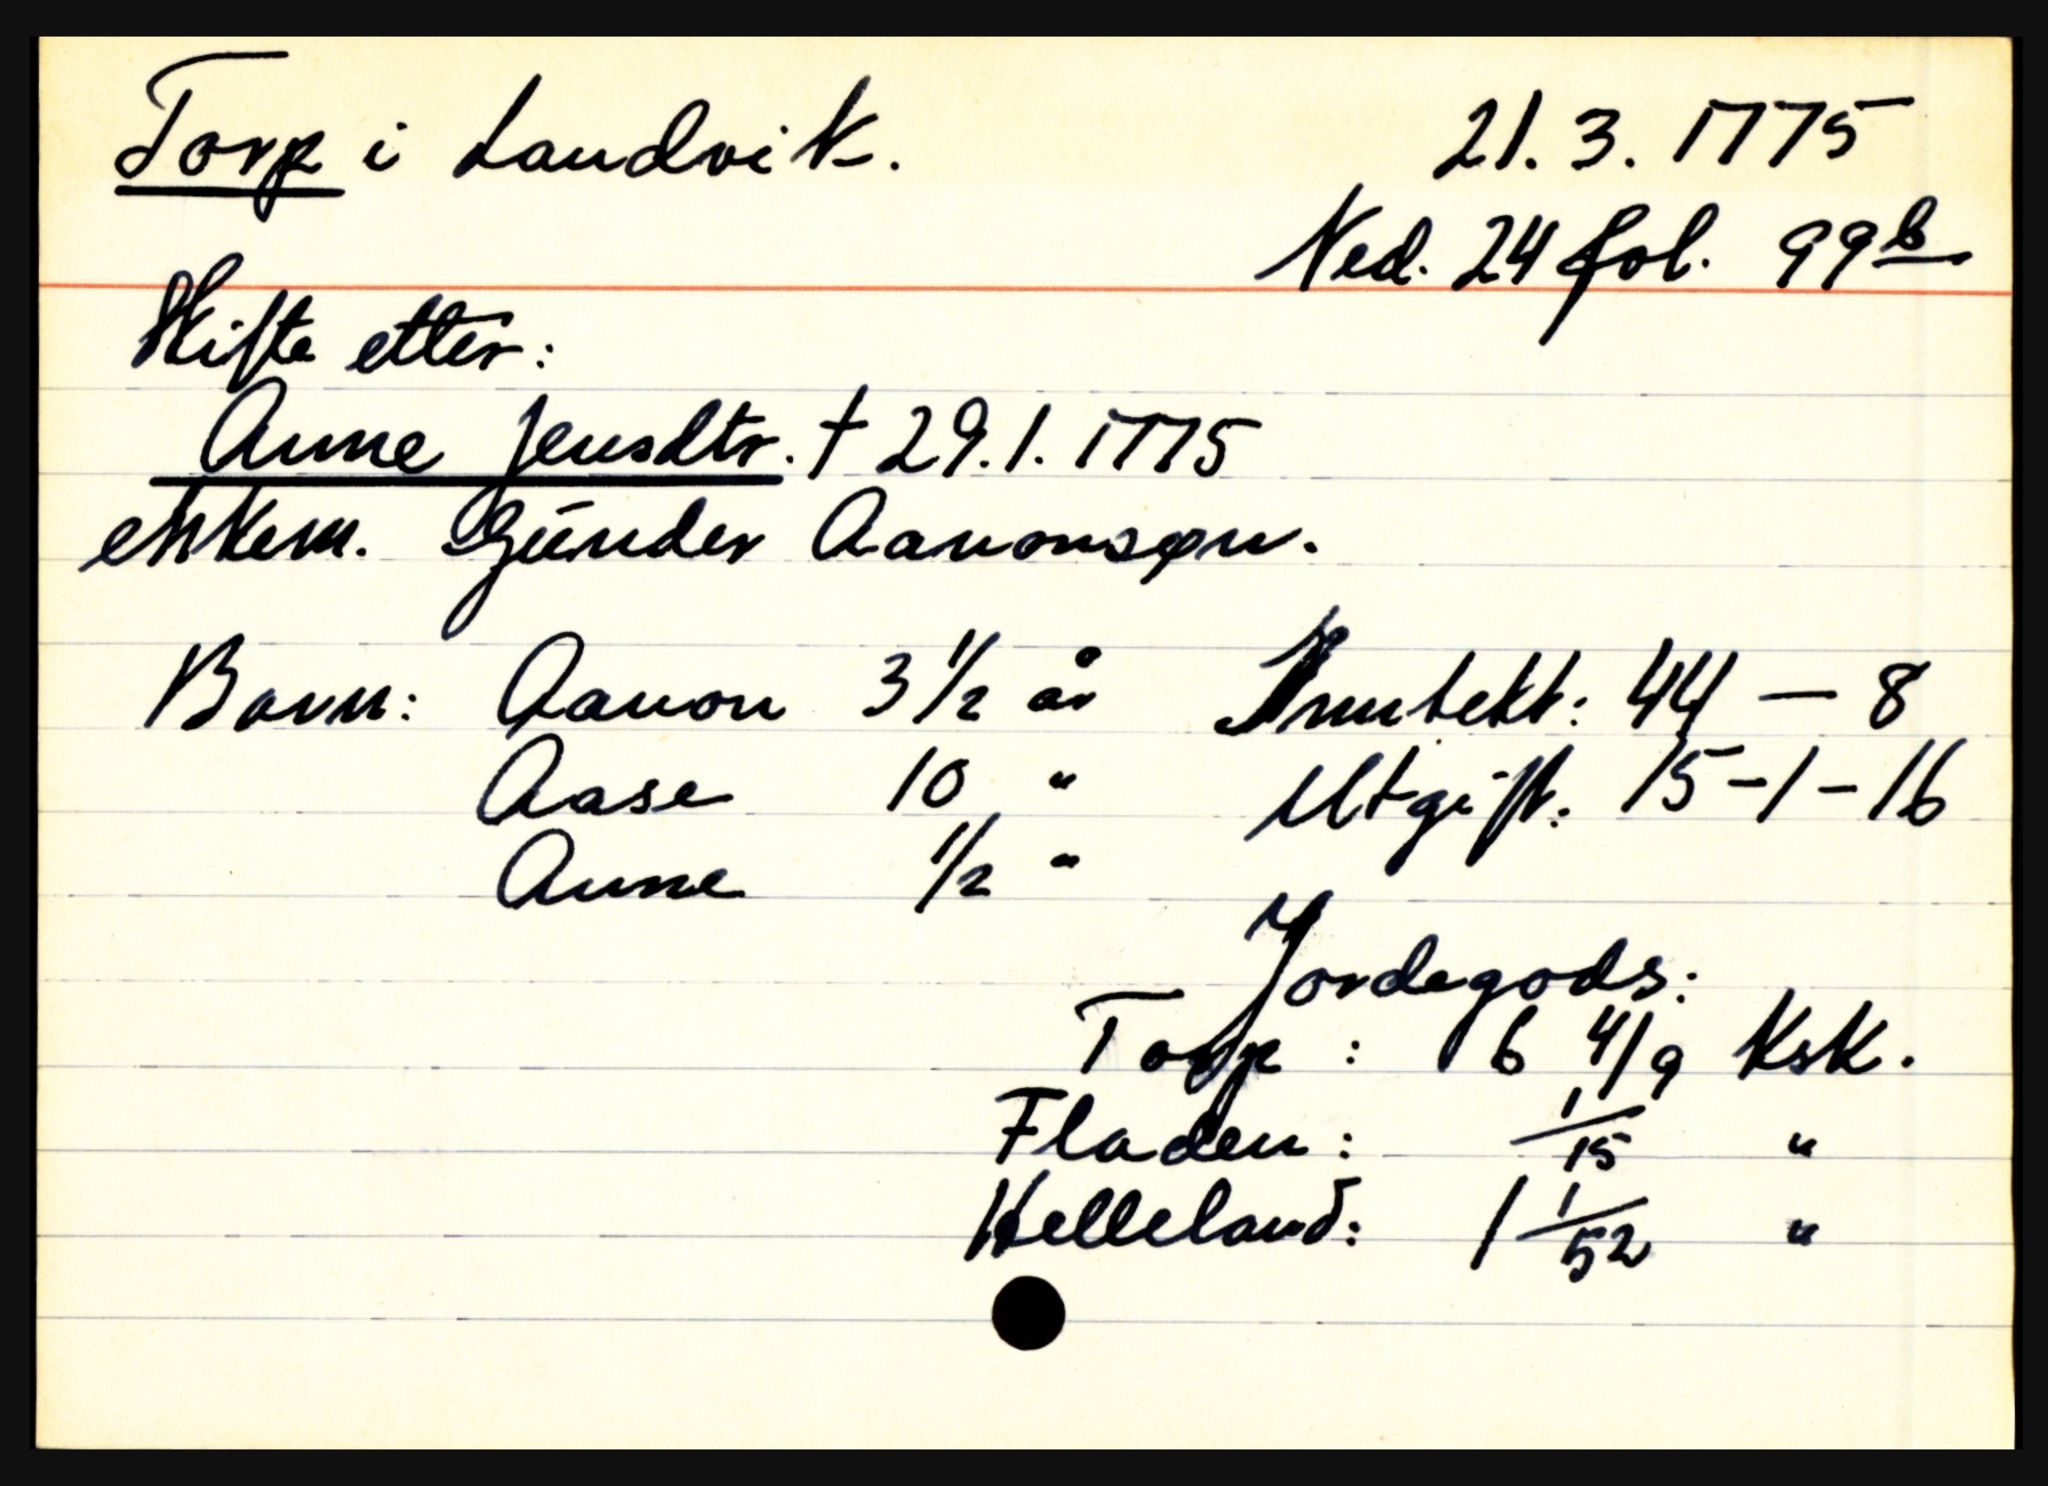 Torp i Landvik.
21. 3. 1775
Ned. 24 fol. 99 b
Skifte etter:
Anne Jensdtr. † 29. 1. 1775
enkem. Gunder Aanonsøn.
Barn: Aanon 3 1/2 år Inntekt: 44 — 8
Aase 10 " Utgift: 15 - 1 - 16
Anne 1/2 "
Jordegods:
Torp : 6 4/9 Ksk.
Fladen : 1/15 "
Helleland: 1 1/52 "